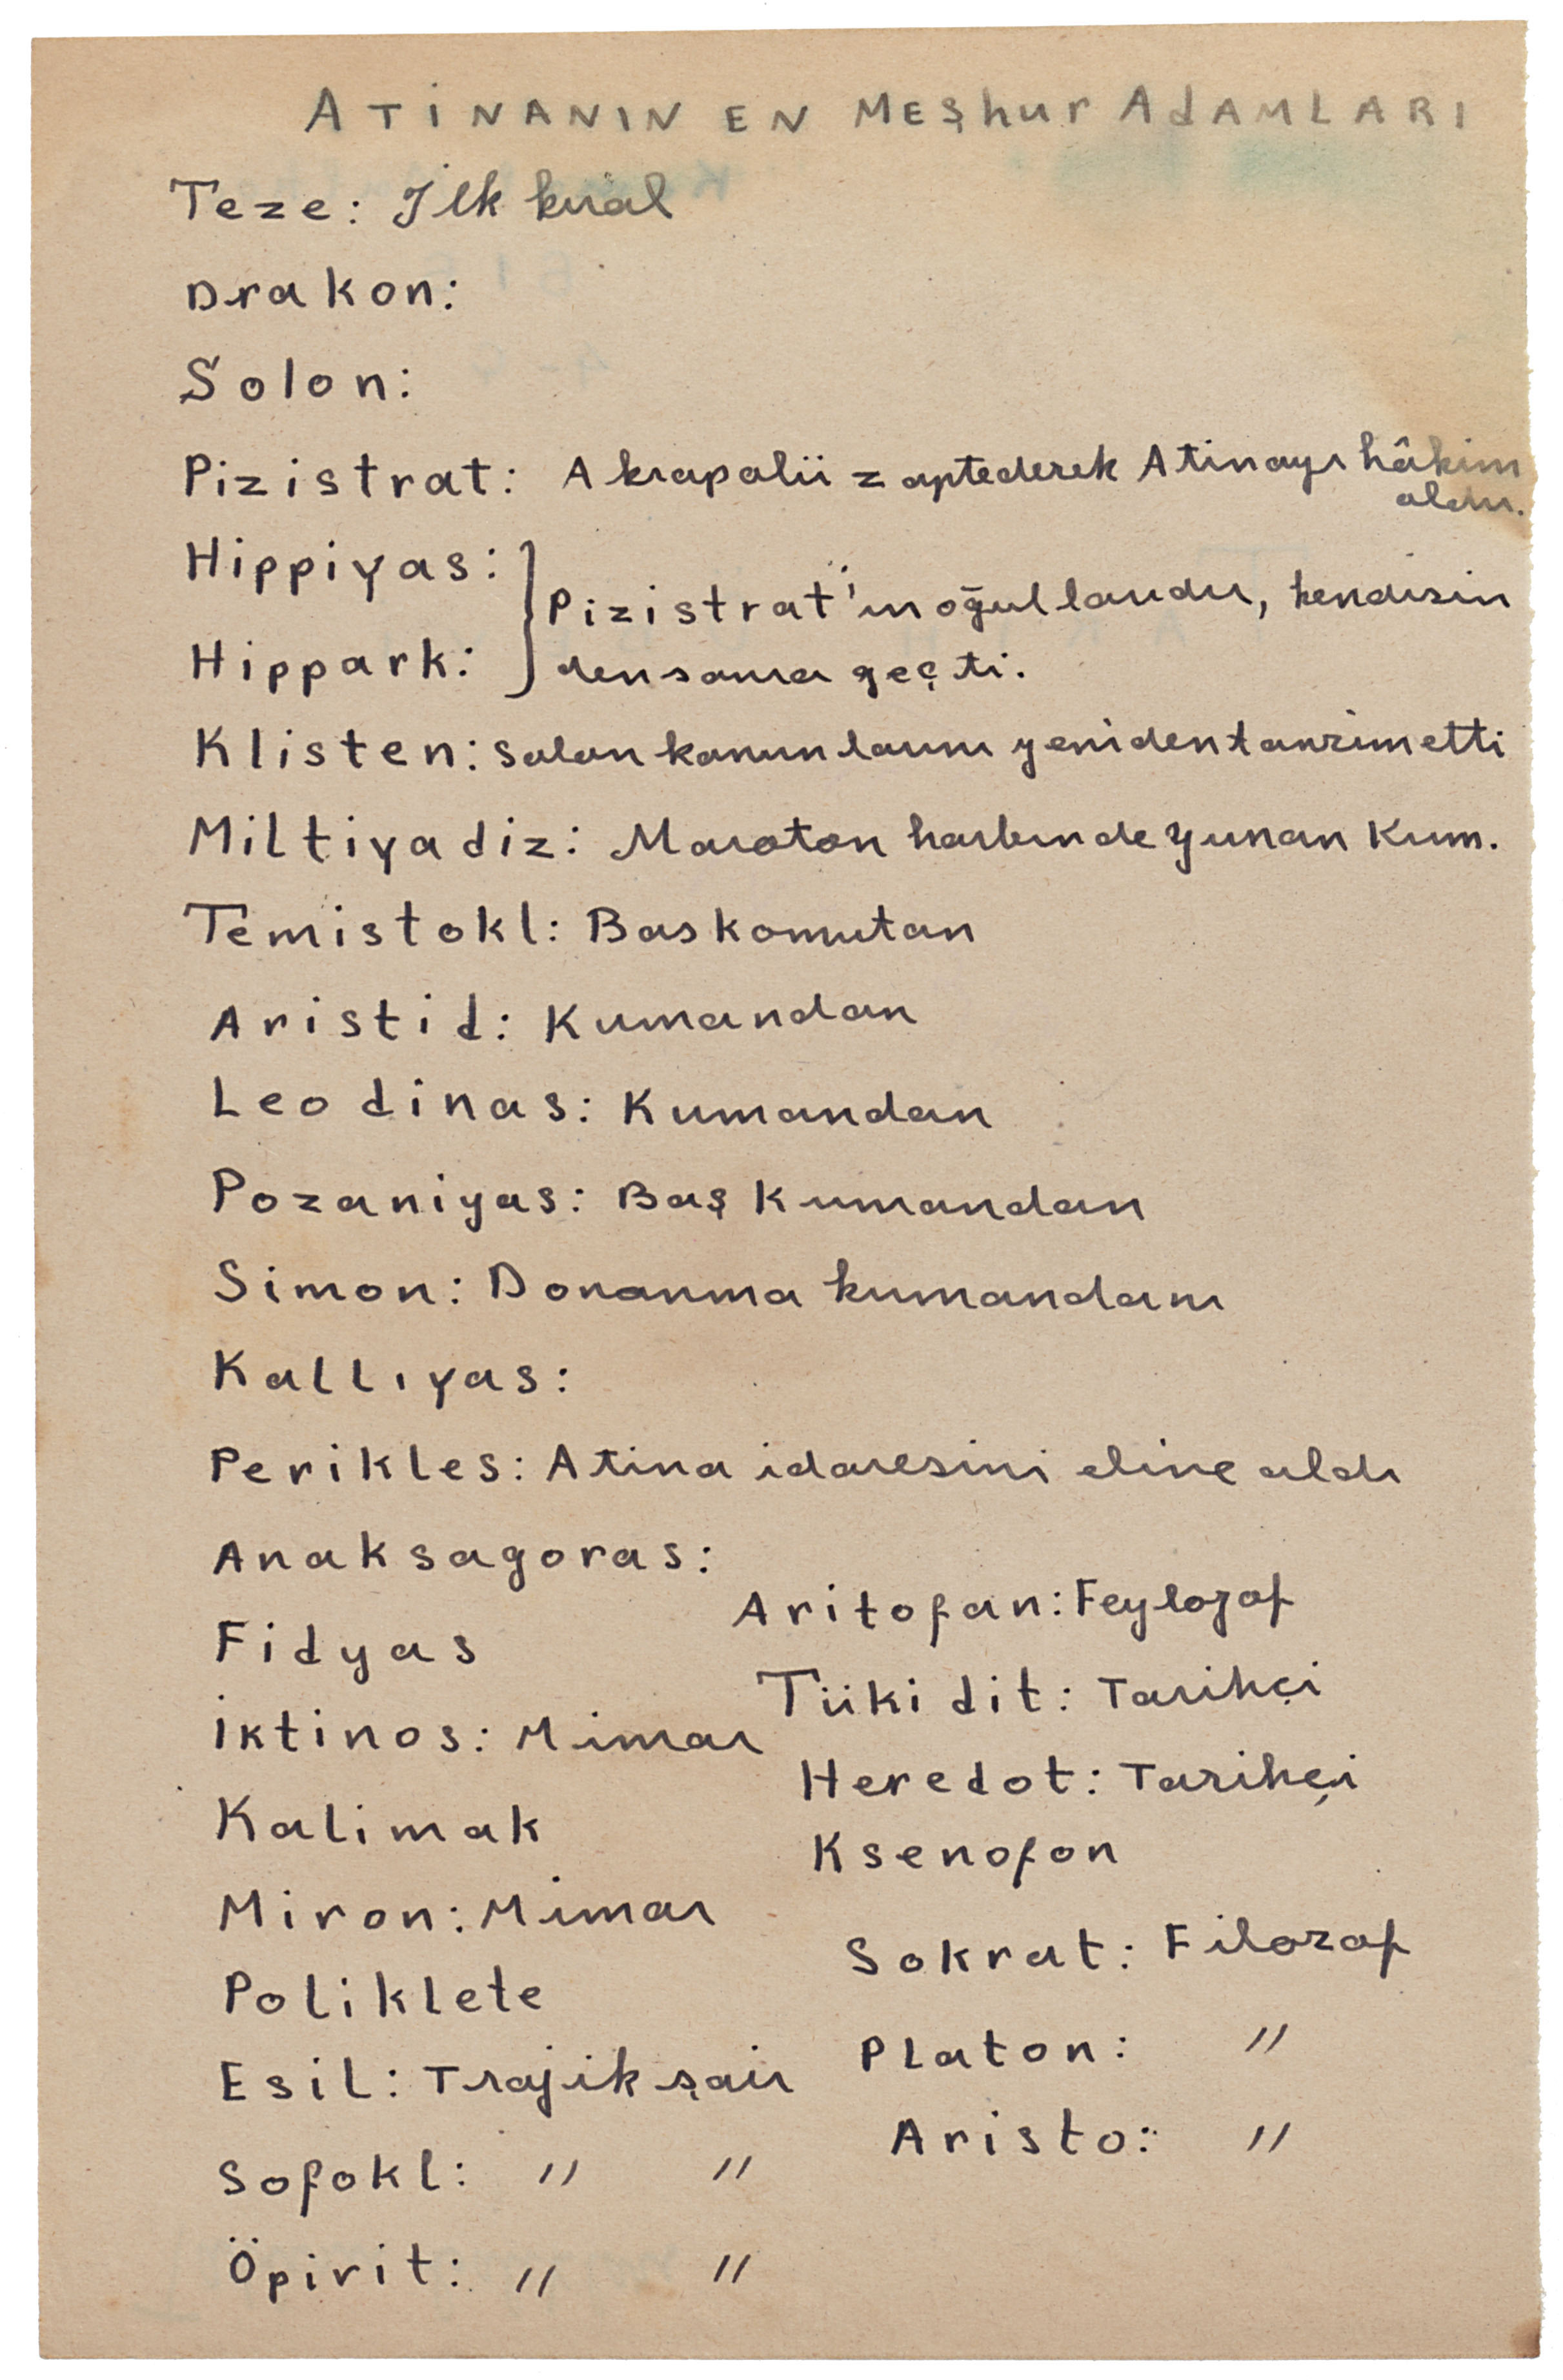 ATİNANIN EN MEŞhur AdAMLARI
Teze: İlk kıral
Drakon:
Solon:
Pizistrat: Akrapolü zaptederek Atinaya hâkim
oldu.
Hippiyas:
Pizistrat'ın oğullarıdır, kendisin
Hippark:
den sonra geçti.
Klisten: Solon kanunlarını yeniden tanzim etti
Miltiyadiz: Maraton harbinde Yunan Kum.
Temistokl: Baskomutan
Aristid: Kumandan
Leodinas: Kumandan
Pozaniyas: Baş Kumandan
Simon: Donanma kumandanı
Kallıyas:
Perikles: Atina idaresini eline aldı
Anaksagoras:
Fidyas
İktinos: Mimar
Kalimak
Miron: Mimar
Poliklete
Esil: Trajik şair
Sofokl: " "
Öpirit: " "
Aritofan: Feylozof
Tükidit: Tarihçi
Heredot: Tarihçi
Ksenofon
Sokrat: Filozof
Platon: "
Aristo: "